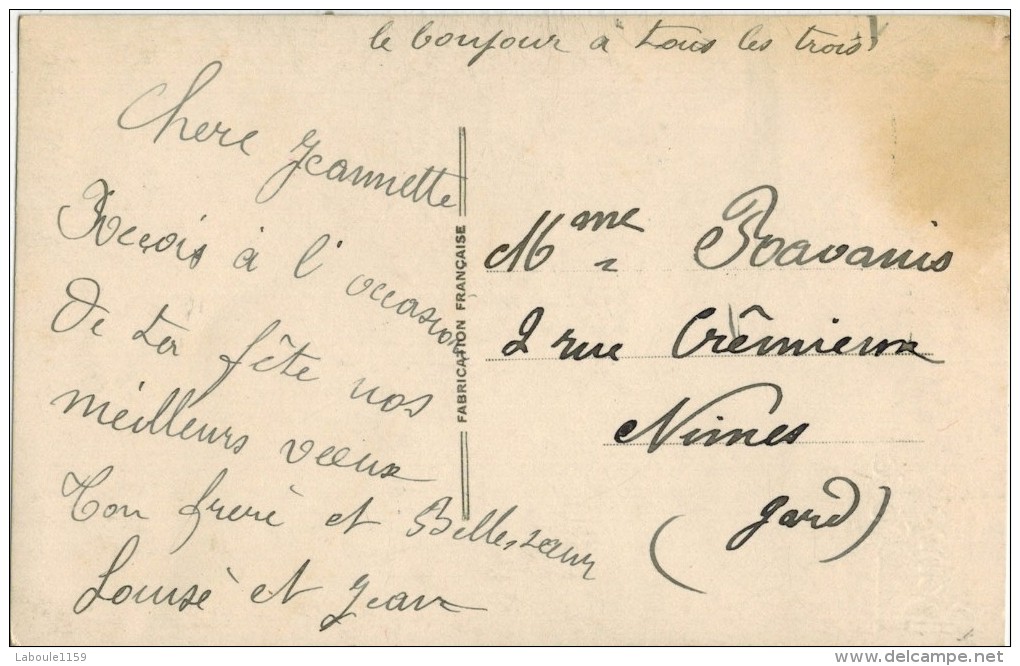 le bonjour à tous les trois
Chere Jeannette
Reçois à l'occasion
De ta fête nos
meilleurs vœux
Ton frere et Belle-sœur
Louise et Jean
FABRICATION FRANÇAISE
Mme
2 rue Crêmieux
Nimes
(Gard)
Laboule1159
www.delcampe.net